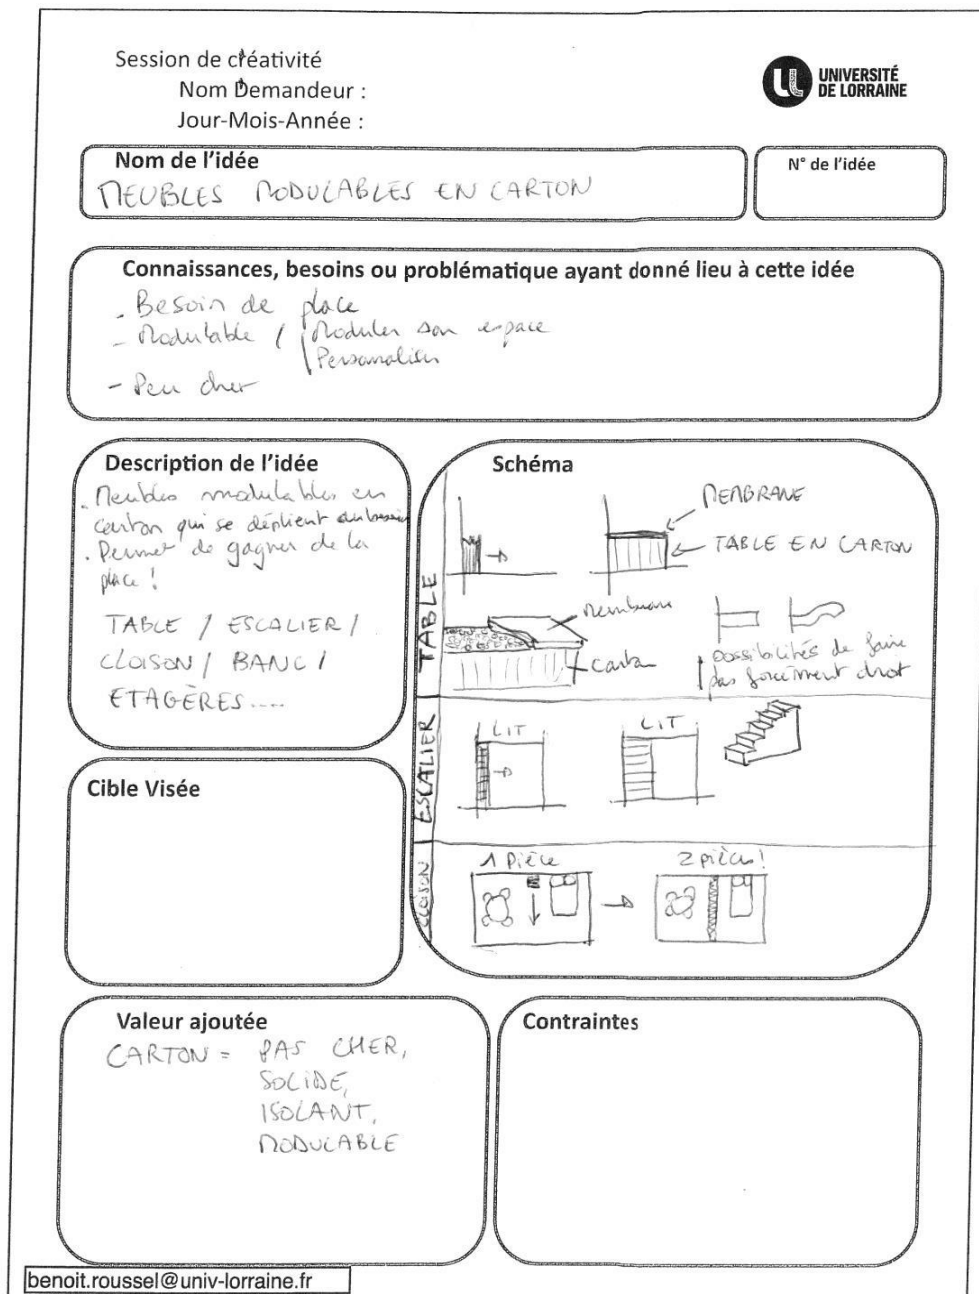 Session de créativité
Nom Demandeur :
Jour-Mois-Année :
UNIVERSITÉ
DE LORRAINE
Nom de l'idée
MEUBLES MODULABLES EN CARTON
N° de l'idée
Connaissances, besoins ou problématique ayant donné lieu à cette idée
- Besoin de place
- Modulable / Moduler son espace
Personnaliser
- Peu cher
Description de l'idée
. Meubles modulables en
carton qui se déplient
. Permet de gagner de la
place !
TABLE / ESCALIER /
CLOISON / BANC /
ETAGÈRES....
Schéma
TABLE
MEMBRANE
TABLE EN CARTON
Membrane
Carton
possibilités de faire
pas forcément droit
ESCALIER
LIT
LIT
CLOISON
1 Pièce
2 pièces !
Cible Visée
Valeur ajoutée
CARTON = PAS CHER,
SOLIDE,
ISOLANT,
MODULABLE
Contraintes
benoit.roussel@univ-lorraine.fr